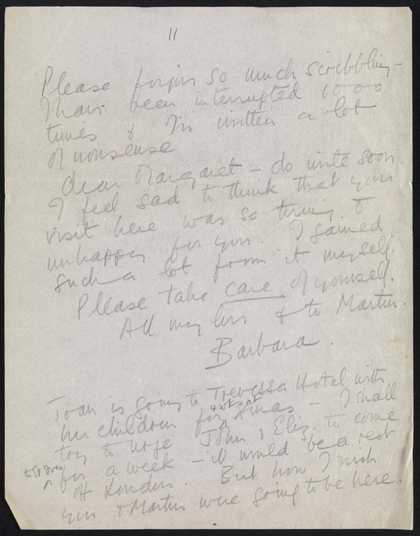 11
Please forgive so much scribbling –
I have been interrupted 1000
times & I'm written a lot
of nonsense
Dear Margaret – do write soon.
I feel sad to think that your
visit here was so tiring &
unhappy for you. I gained
such a lot from it myself.
Please take care of yourself.
All my love & to Martin.
Barbara.
Joan is going to Tregenna Hotel with
her children for Xmas – I shall
try to urge John & Eliz. to come
for a week – it would be a rest
of London. But how I wish
you & Martin were going to be here.